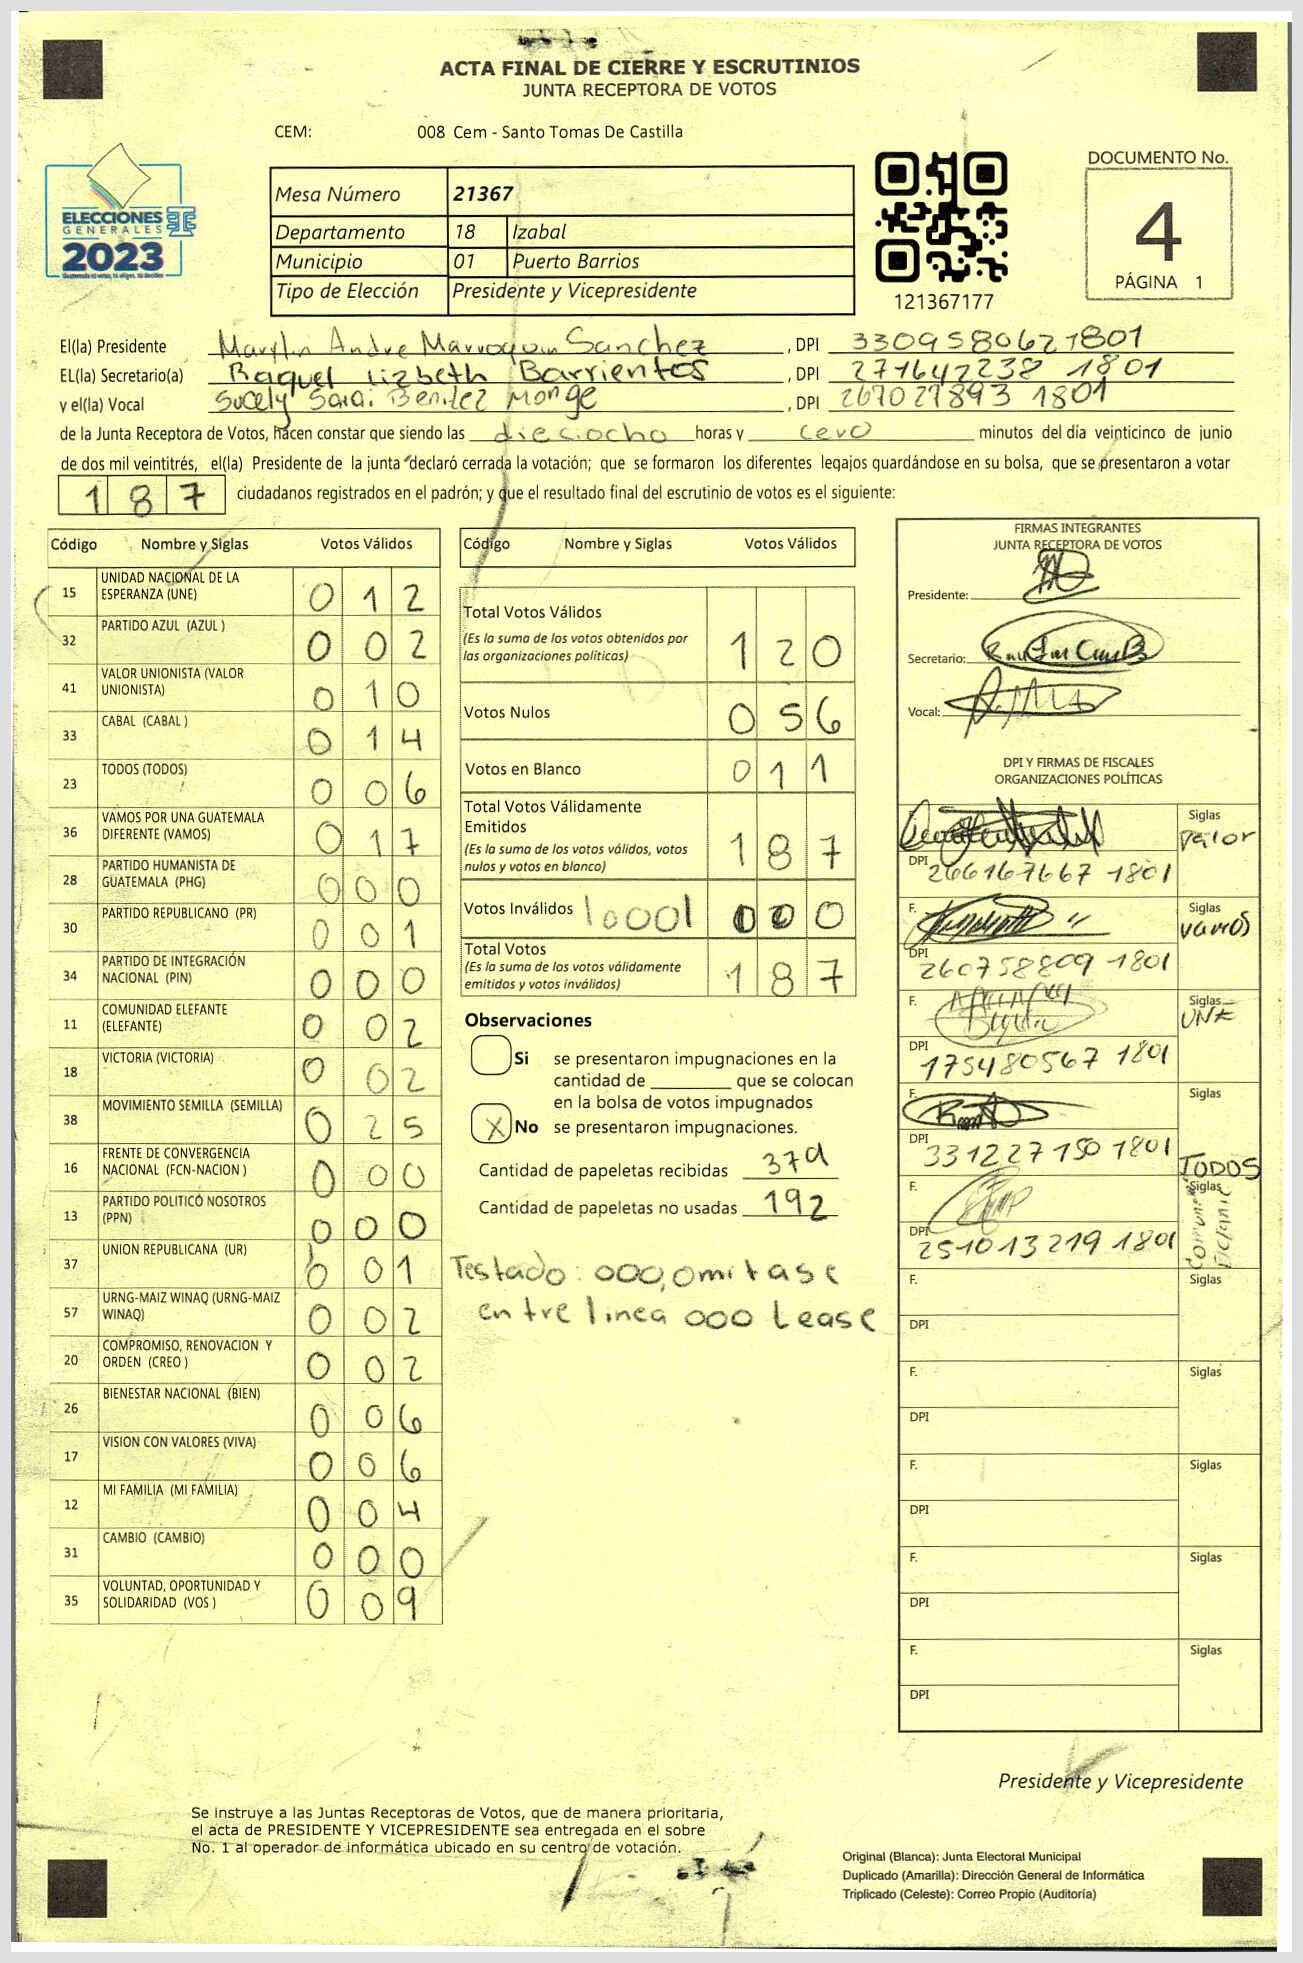 ACTA FINAL DE CIERRE Y ESCRUTINIOS
JUNTA RECEPTORA DE VOTOS
CEM: 008 Cem - Santo Tomas De Castilla
ELECCIONES
GENERALES
2023
Mesa Número 21367
Departamento 18 Izabal
Municipio 01 Puerto Barrios
Tipo de Elección Presidente y Vicepresidente
121367177
DOCUMENTO No.
4
PÁGINA 1
El(la) Presidente Marylin Andre Marroquin Sanchez, DPI 3309580621801
EL(la) Secretario(a) Raquel Lizbeth Barrientos, DPI 271642238 1801
y el(la) Vocal Sucely Sarai Benitez Monge, DPI 267027893 1801
de la Junta Receptora de Votos, hacen constar que siendo las dieciocho horas y cero minutos del día veinticinco de junio
de dos mil veintitrés, el(la) Presidente de la junta declaró cerrada la votación; que se formaron los diferentes legajos guardándose en su bolsa, que se presentaron a votar
187 ciudadanos registrados en el padrón; y que el resultado final del escrutinio de votos es el siguiente:
Código Nombre y Siglas Votos Válidos
15 UNIDAD NACIONAL DE LA ESPERANZA (UNE) 012
32 PARTIDO AZUL (AZUL ) 002
41 VALOR UNIONISTA (VALOR UNIONISTA) 010
33 CABAL (CABAL ) 014
23 TODOS (TODOS) 006
36 VAMOS POR UNA GUATEMALA DIFERENTE (VAMOS) 017
28 PARTIDO HUMANISTA DE GUATEMALA (PHG) 000
30 PARTIDO REPUBLICANO (PR) 001
34 PARTIDO DE INTEGRACIÓN NACIONAL (PIN) 000
11 COMUNIDAD ELEFANTE (ELEFANTE) 002
18 VICTORIA (VICTORIA) 002
38 MOVIMIENTO SEMILLA (SEMILLA) 025
16 FRENTE DE CONVERGENCIA NACIONAL (FCN-NACION ) 000
13 PARTIDO POLITICO NOSOTROS (PPN) 000
37 UNION REPUBLICANA (UR) 001
57 URNG-MAIZ WINAQ (URNG-MAIZ WINAQ) 002
20 COMPROMISO, RENOVACION Y ORDEN (CREO ) 002
26 BIENESTAR NACIONAL (BIEN) 006
17 VISION CON VALORES (VIVA) 006
12 MI FAMILIA (MI FAMILIA) 004
31 CAMBIO (CAMBIO) 000
35 VOLUNTAD, OPORTUNIDAD Y SOLIDARIDAD (VOS ) 009
Código Nombre y Siglas Votos Válidos
Total Votos Válidos 120
(Es la suma de los votos obtenidos por
las organizaciones politicas)
Votos Nulos 056
Votos en Blanco 011
Total Votos Válidamente
Emitidos 187
(Es la suma de los votos válidos, votos
nulos y votos en blanco)
Votos Inválidos 10001 000
Total Votos 187
(Es la suma de los votos válidamente
emitidos y votos inválidos)
Observaciones
Si se presentaron impugnaciones en la
cantidad de ________ que se colocan
en la bolsa de votos impugnados
X No se presentaron impugnaciones.
Cantidad de papeletas recibidas 379
Cantidad de papeletas no usadas 192
Testado: 000, omitase
entre linea 000 Lease
FIRMAS INTEGRANTES
JUNTA RECEPTORA DE VOTOS
Presidente:
Secretario:
Vocal:
DPI Y FIRMAS DE FISCALES
ORGANIZACIONES POLÍTICAS
Siglas valor
DPI 266167667 1801
F. Siglas vamos
DPI 260758809 1801
F. Siglas UNE
DPI 175480567 1801
F. Siglas TODOS
DPI 331227150 1801
F. Siglas
DPI 251013219 1801
F. Siglas
DPI
F. Siglas
DPI
F. Siglas
DPI
F. Siglas
DPI
F. Siglas
DPI
Presidente y Vicepresidente
Se instruye a las Juntas Receptoras de Votos, que de manera prioritaria,
el acta de PRESIDENTE Y VICEPRESIDENTE sea entregada en el sobre
No. 1 al operador de informática ubicado en su centro de votación.
Original (Blanca): Junta Electoral Municipal
Duplicado (Amarilla): Dirección General de Informática
Triplicado (Celeste): Correo Propio (Auditoría)